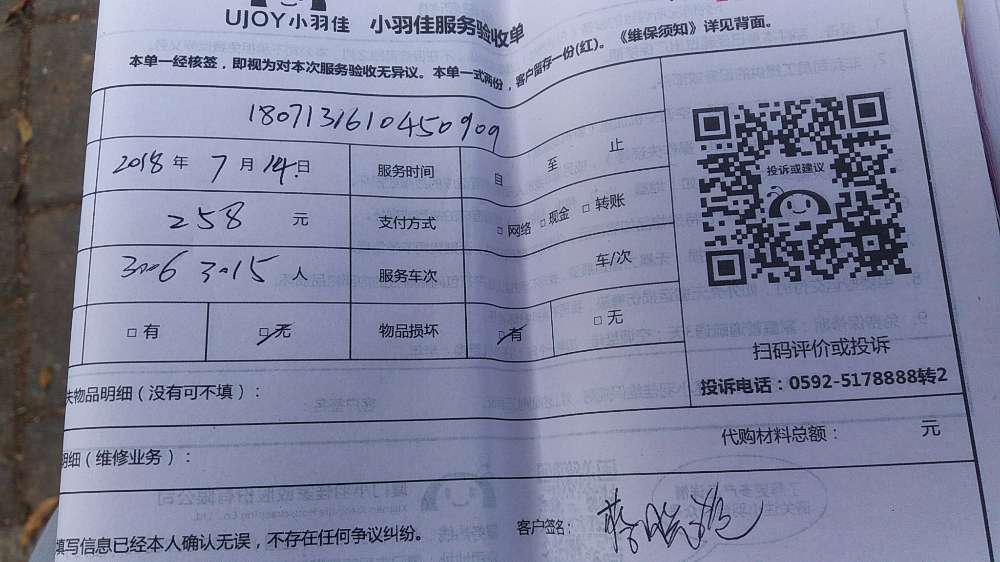 UJOY小羽佳 小羽佳服务验收单
本单一经核签，即视为对本次服务验收无异议。本单一式两份，客户留存一份(红)。《维保须知》详见背面。
180713161045090 9
2018 年 7 月 14 日 服务时间 日 至 止
258 元 支付方式 □ 网络 □ 现金 □ 转账
3006 3015 人 服务车次 车/次
□ 有 □ 无 物品损坏 □ 有 □ 无
投诉或建议
扫码评价或投诉
投诉电话：0592-5178888转2
失物品明细（没有可不填）：
代购材料总额： 元
明细（维修业务）：
填写信息已经本人确认无误，不存在任何争议纠纷。 客户签名：